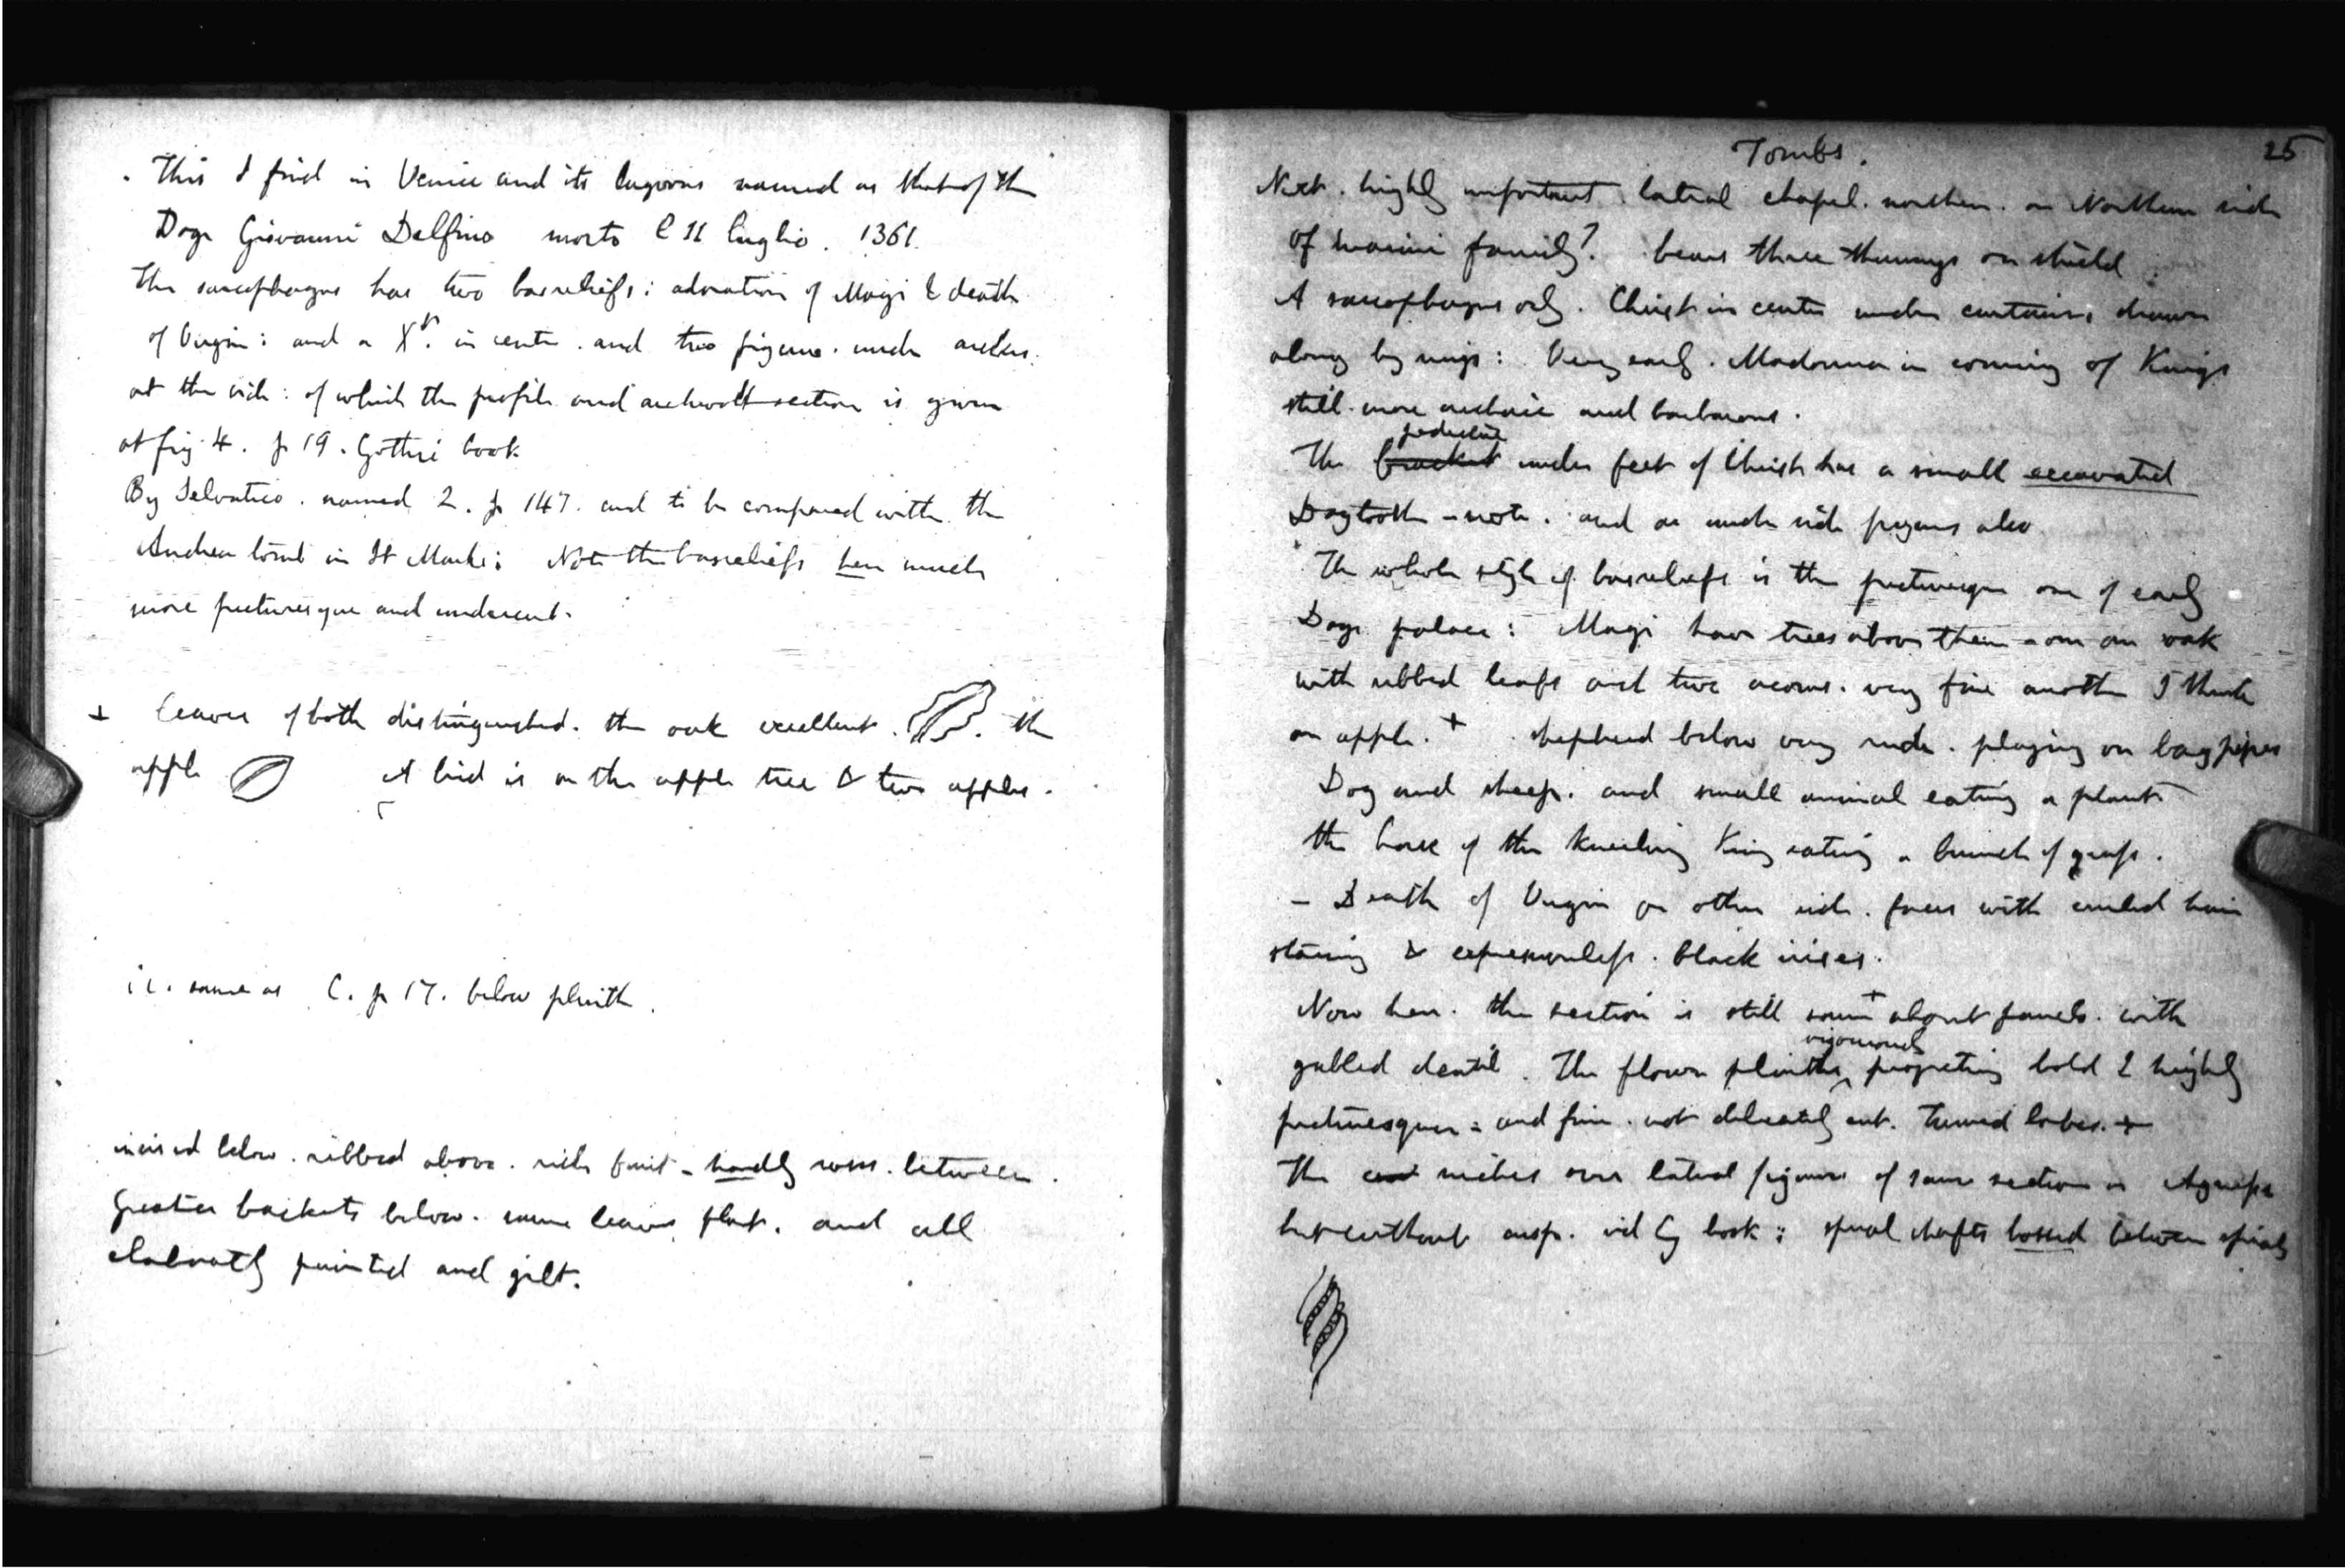 This I find in Venice and its lagoons named as that of the
Doge Giovanni Delfino morto l 11 luglio. 1361.
The sarcophagus has two basreliefs: adoration of Magi & death
of Virgin: and a Xt. in centre. and two figures. under arches.
at the side: of which the profile and archivolt section is given
at fig 4. p 19. Gothic book
By Selvatico. named 2. p 147. and to be compared with the
Andrea tomb in St Marks: Note the basreliefs here much
more picturesque and undercut.
+ Leaves of both distinguished. the oak excellent. the
apple A bird is on the apple tree & two apples.
i.e. same as C. p 17. below plinth.
incised below. ribbed above. rich fruit - hardly seen. between
greater brackets below. some leaves flat. and all
elaborately painted and gilt.
Tombs. 25
Next. highly important lateral chapel. northern. on Northern side
of family? bears three on shield
A sarcophagus only. Christ in centre under curtains, drawn
along by rings: Very early. Madonna in coming of Kings
still more archaic and barbarous.
pedestal
The bracket under feet of Christ has a small excavated
Dogtooth - note. and as under side figures also
The whole style of basreliefs is the picturesque one of early
Doge palace: Magi have trees above them - one an oak
with ribbed leafs and two acorns. very fine another I think
an apple. + shepherd below very rude. playing on bagpipes
Dog and sheep. and small animal eating a plant
the horse of the kneeling King eating a bunch of grass.
- Death of Virgin on other side. faces with curled hair
staring & expressionless. black irises.
Now here. the section is still same + about panels. with
vigorously
gabled dentil. The flower plinths projecting bold & highly
picturesque: and fine. not delicately cut. turned lobes. +
The niches over lateral figures of same section as
but without cusp. vid book: spiral shafts bossed between spirals